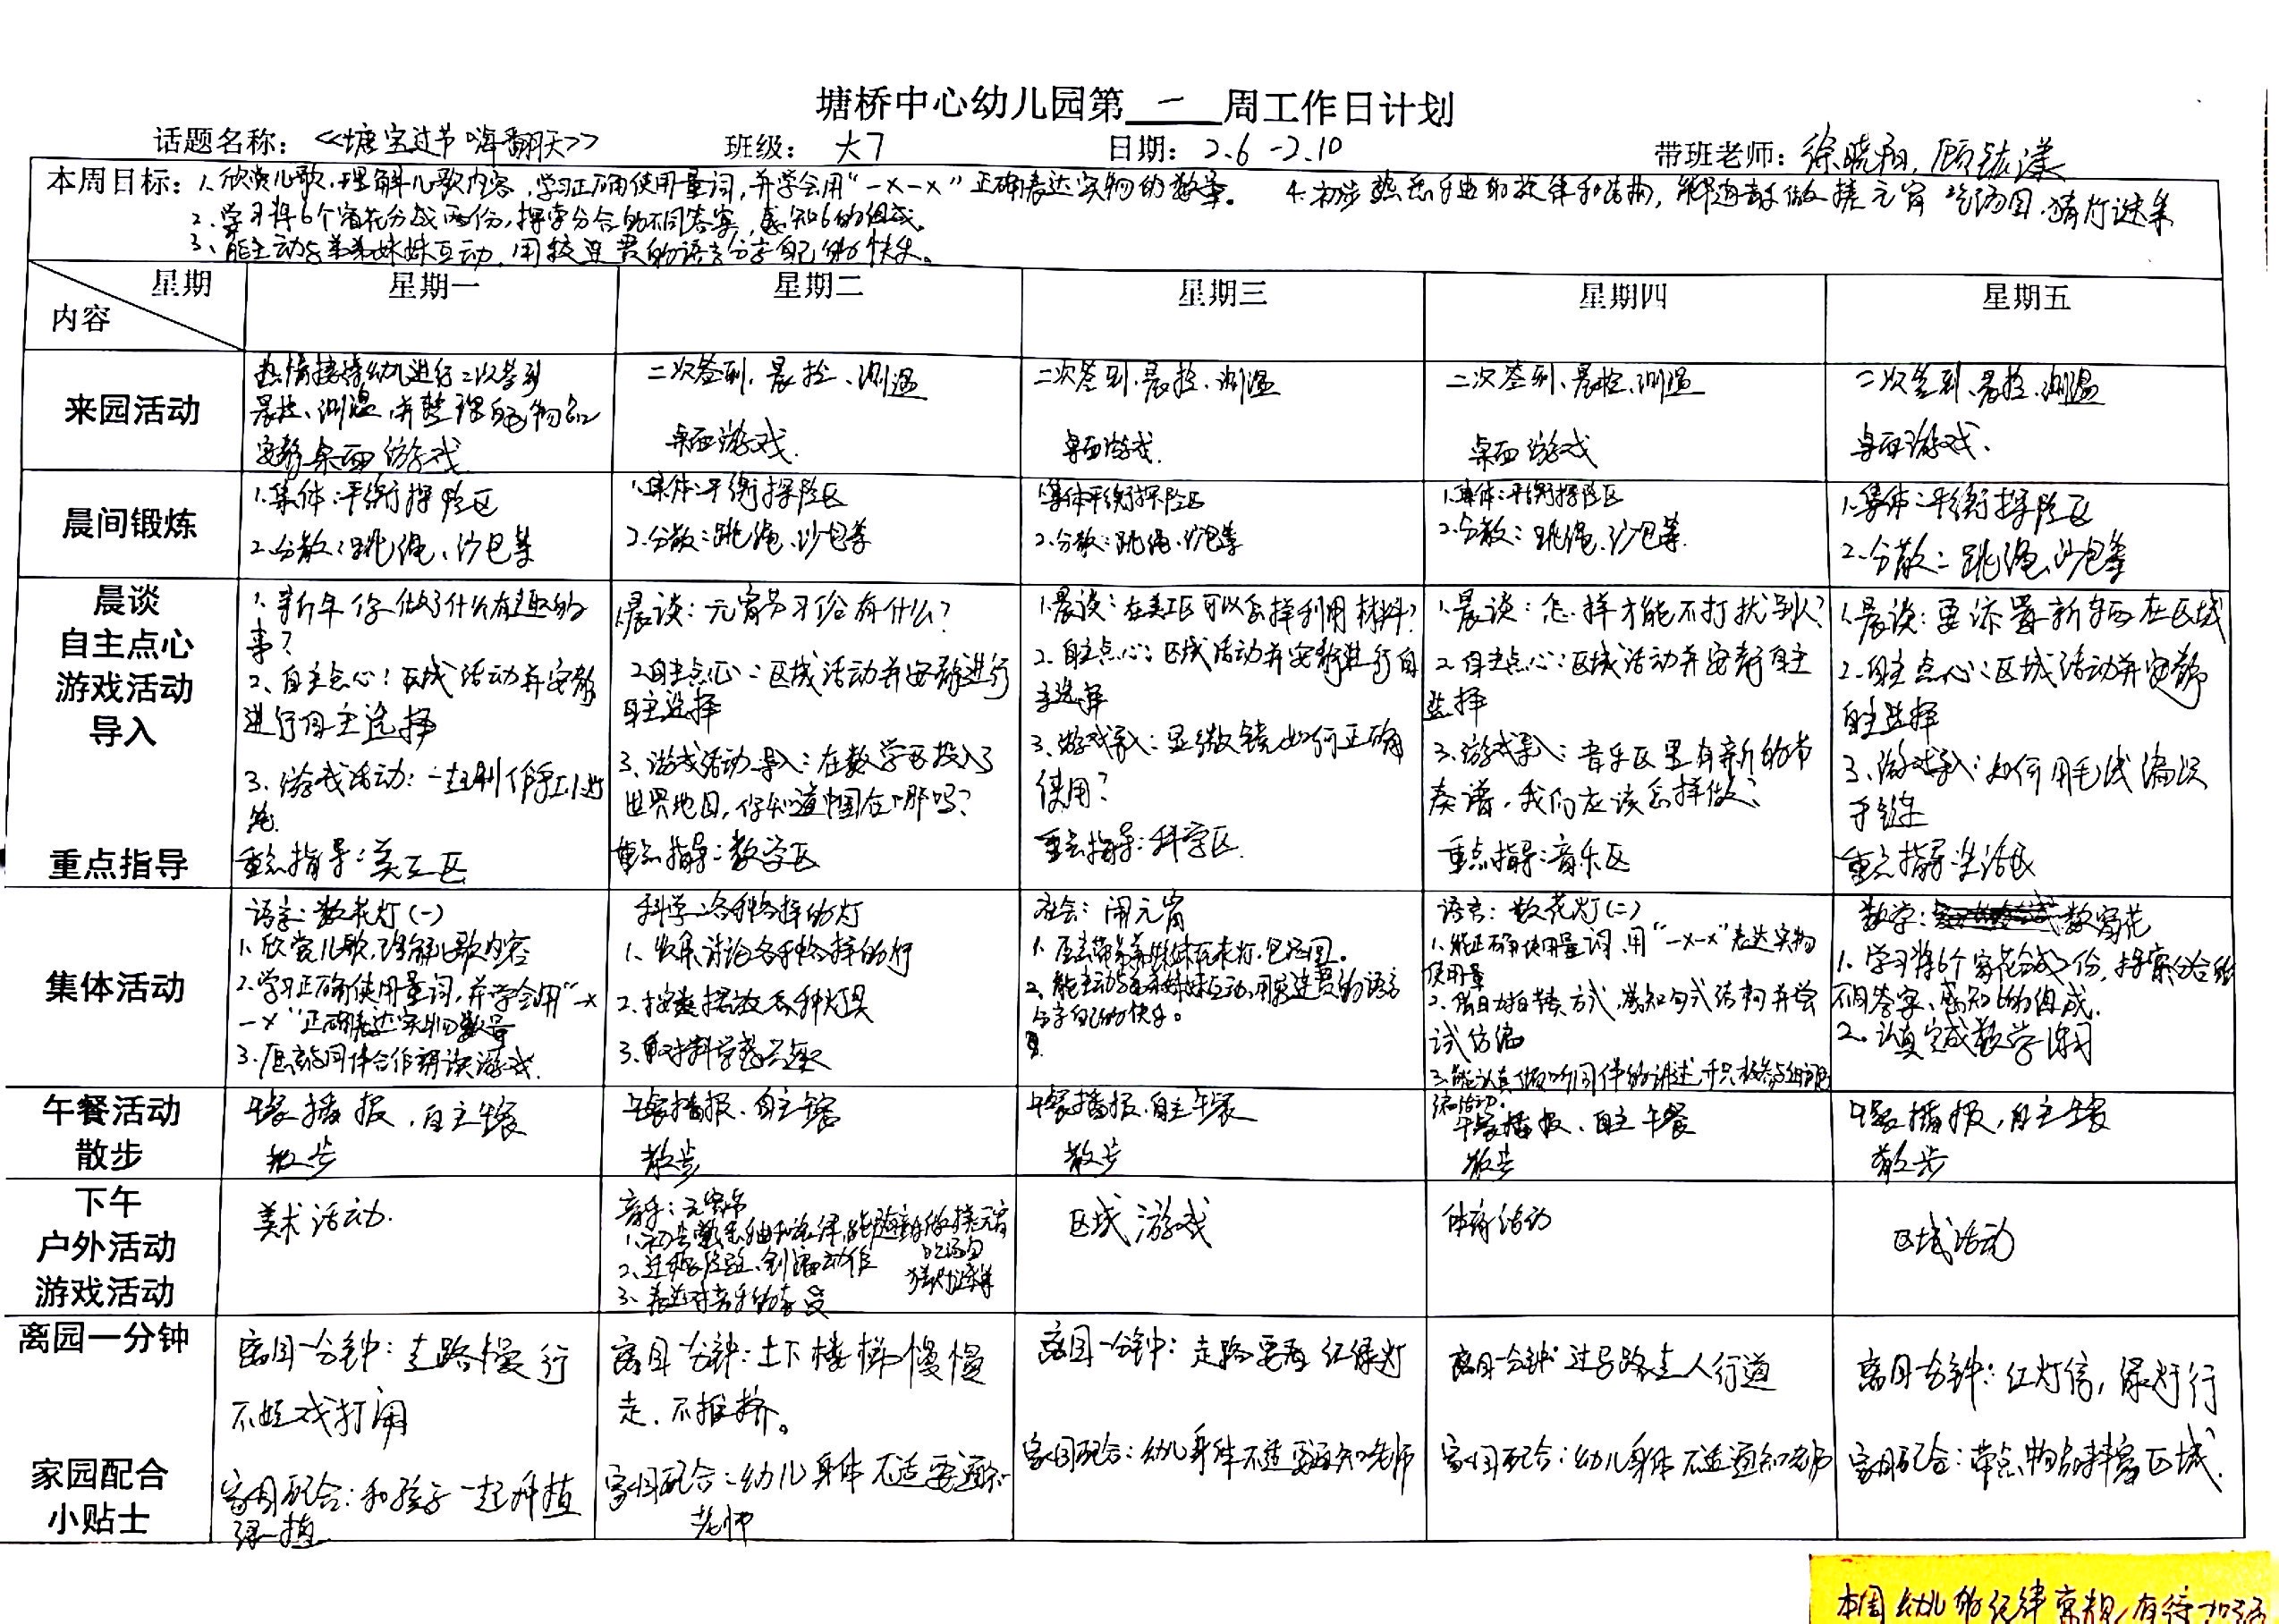 塘桥中心幼儿园第 二 周工作日计划
话题名称：《塘宝过节嗨翻天》 班级：大7 日期：2.6-2.10 带班老师：徐晓
本周目标：1、欣赏儿歌，理解儿歌内容，学习正确使用量词，并学会用“一×一×”正确表达实物的数量。 4、初步熟悉乐曲的旋律和结构，能随音乐做搓元宵 吃汤圆 猜灯谜等
2、学习将6个窗花分成两份，探索分合的不同答案，感知6的组成。
3、能主动与弟弟妹妹互动，用较连贯的语言分享自己的快乐。
星期
内容
星期一 星期二 星期三 星期四 星期五
来园活动
热情接待幼儿进行二次签到
晨检、测温，并整理自己物品
安静桌面游戏
二次签到、晨检、测温
桌面游戏.
二次签到、晨检、测温
桌面游戏.
二次签到、晨检、测温
桌面游戏
二次签到、晨检、测温
桌面游戏.
晨间锻炼
1.集体：平衡探险区
2.分散：跳绳、沙包等
1.集体：平衡探险区
2.分散：跳绳、沙包等
1.集体平衡探险区
2.分散：跳绳、沙包等
1.集体：平衡探险区
2.分散：跳绳、沙包等.
1.集体：平衡探险区
2.分散：跳绳、沙包等
晨谈
自主点心
游戏活动
导入
重点指导
1、新年你做了什么有趣的
事？
2、自主点心：区域活动并安静
进行自主选择
3、游戏活动：一起制作手工
重点指导：美工区
1.晨谈：元宵节习俗有什么？
2.自主点心：区域活动并安静进行
自主选择
3、游戏活动导入：在数学区投入了
世界地图，你知道中国在哪吗？
重点指导：数学区
1.晨谈：在美工区可以怎样利用材料？
2.自主点心：区域活动并安静进行自
主选择
3.游戏导入：显微镜如何正确
使用？
重点指导：科学区.
1.晨谈：怎样才能不打扰别人？
2.自主点心：区域活动并安静自主
选择
3.游戏导入：音乐区里有新的节
奏谱，我们应该怎样做？
重点指导：音乐区
1.晨谈：要添置新东西在区域
2.自主点心：区域活动并安静
自主选择
3.游戏导入：如何用毛线编织
手链
重点指导：生活区
集体活动
语言：数花灯（一）
1.欣赏儿歌，理解儿歌内容
2.学习正确使用量词，并学会用“一×
一×”正确表达实物的数量
3.愿意与同伴合作朗读游戏.
科学：各种各样的灯
1、收集讨论各种各样的灯
2、按类摆放各种灯具
3.
社会：闹元宵
1.愿意带弟弟妹妹玩花灯，包汤圆。
2、能主动与弟弟妹妹互动，用较连贯的语言
分享自己的快乐。
语言：数花灯（二）
1.能正确使用量词，用“一×一×”表达实物
使用量
2.借助替换方式，感知句式结构并尝
试仿编
3.能认真倾听同伴的讲述，并积极参与
编活动.
数学：数窗花
1.学习将6个窗花分成2份，探索分合的
不同答案，感知6的组成.
2.认真完成数学练习
午餐活动
散步
午餐播报，自主午餐
散步
午餐播报、自主午餐
散步
午餐播报，自主午餐
散步
午餐播报、自主午餐
散步
午餐播报，自主午餐
散步
下午
户外活动
游戏活动
美术活动.
音乐：元宵节
1.初步熟悉乐曲和旋律，能随音乐做搓元宵
吃汤圆
猜灯谜等
2、迁移经验，创编动作
3、表达对音乐的感受
区域游戏
体育活动
区域活动
离园一分钟
家园配合
小贴士
离园一分钟：走路慢行
不嬉戏打闹
家园配合：和孩子一起种植
绿植
离园一分钟：上下楼梯慢慢
走，不推挤。
家园配合：幼儿身体不适要通知
老师
离园一分钟：走路要看红绿灯
家园配合：幼儿身体不适要通知老师
离园一分钟：过马路走人行道
家园配合：幼儿身体不适通知老师
离园一分钟：红灯停，绿灯行
家园配合：带点物品丰富区域.
本周幼儿的纪律常规有待加强